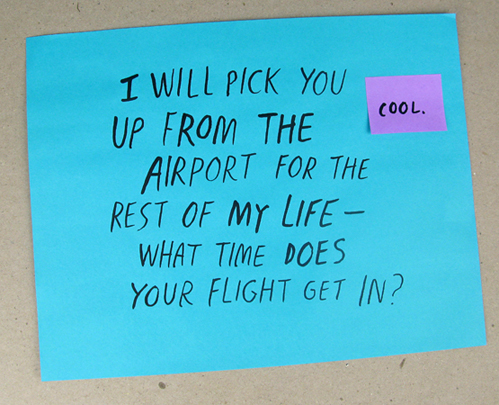 I WILL PICK YOU
UP FROM THE
AIRPORT FOR THE
REST OF MY LIFE —
WHAT TIME DOES
YOUR FLIGHT GET IN?
COOL.